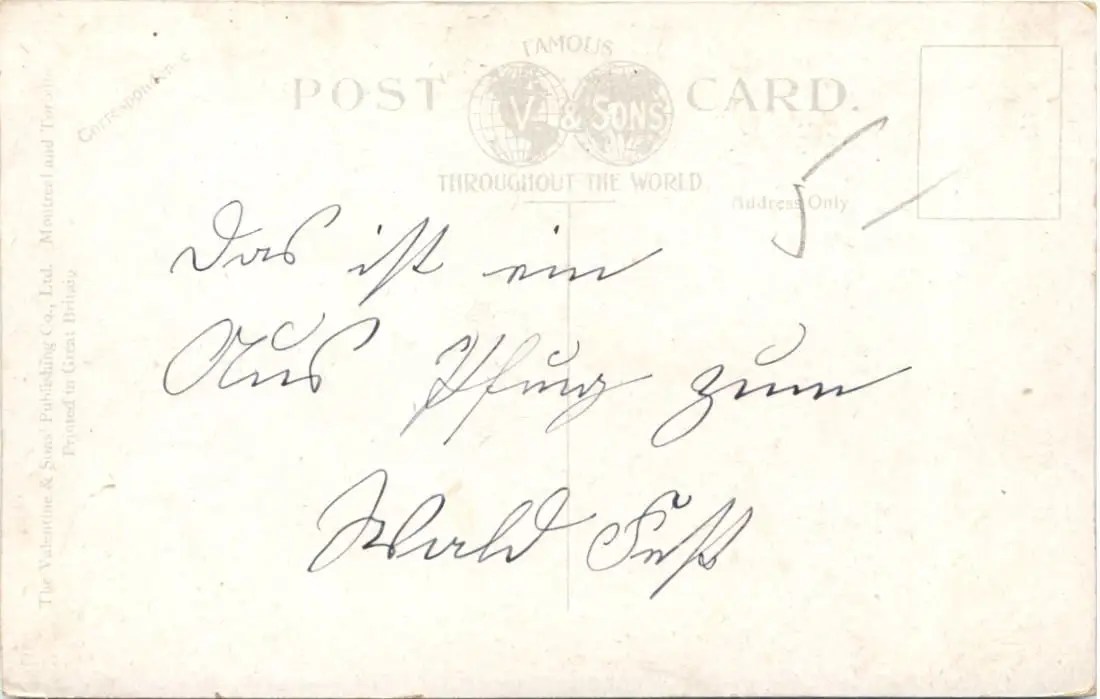 FAMOUS
POST CARD.
V. & SONS
THROUGHOUT THE WORLD
Correspondence
Address Only
5 –
Das ist ein
Aus Pfug zum
Wald Fest
The Valentine & Sons' Publishing Co., Ltd. Montreal and Toronto
Printed in Great Britain